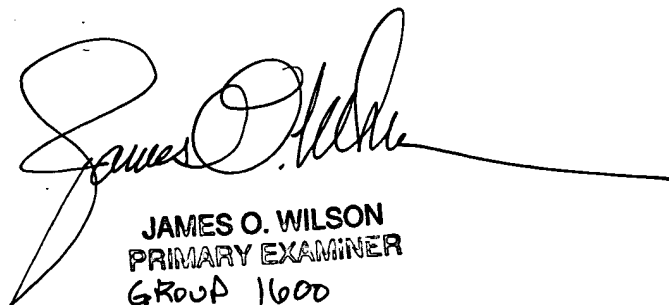 James O. Wilson
JAMES O. WILSON
PRIMARY EXAMINER
GROUP 1600